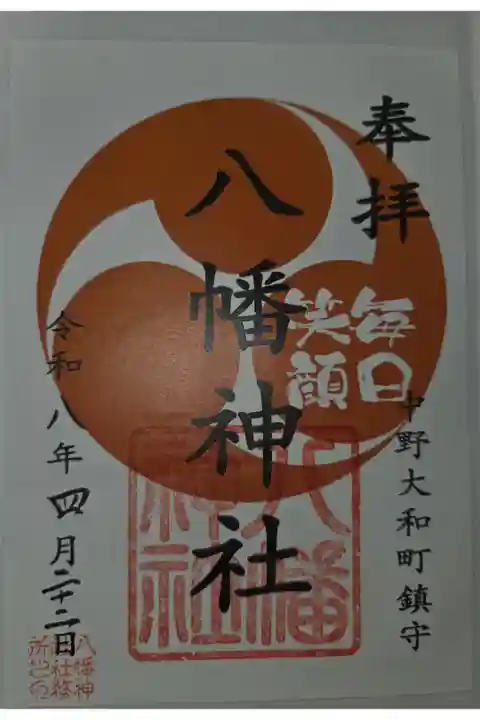 奉拝
毎日
笑顔
中野大和町鎮守
八幡神社
八幡
神社
令和八年四月二十二日
八幡神
社務
所之印